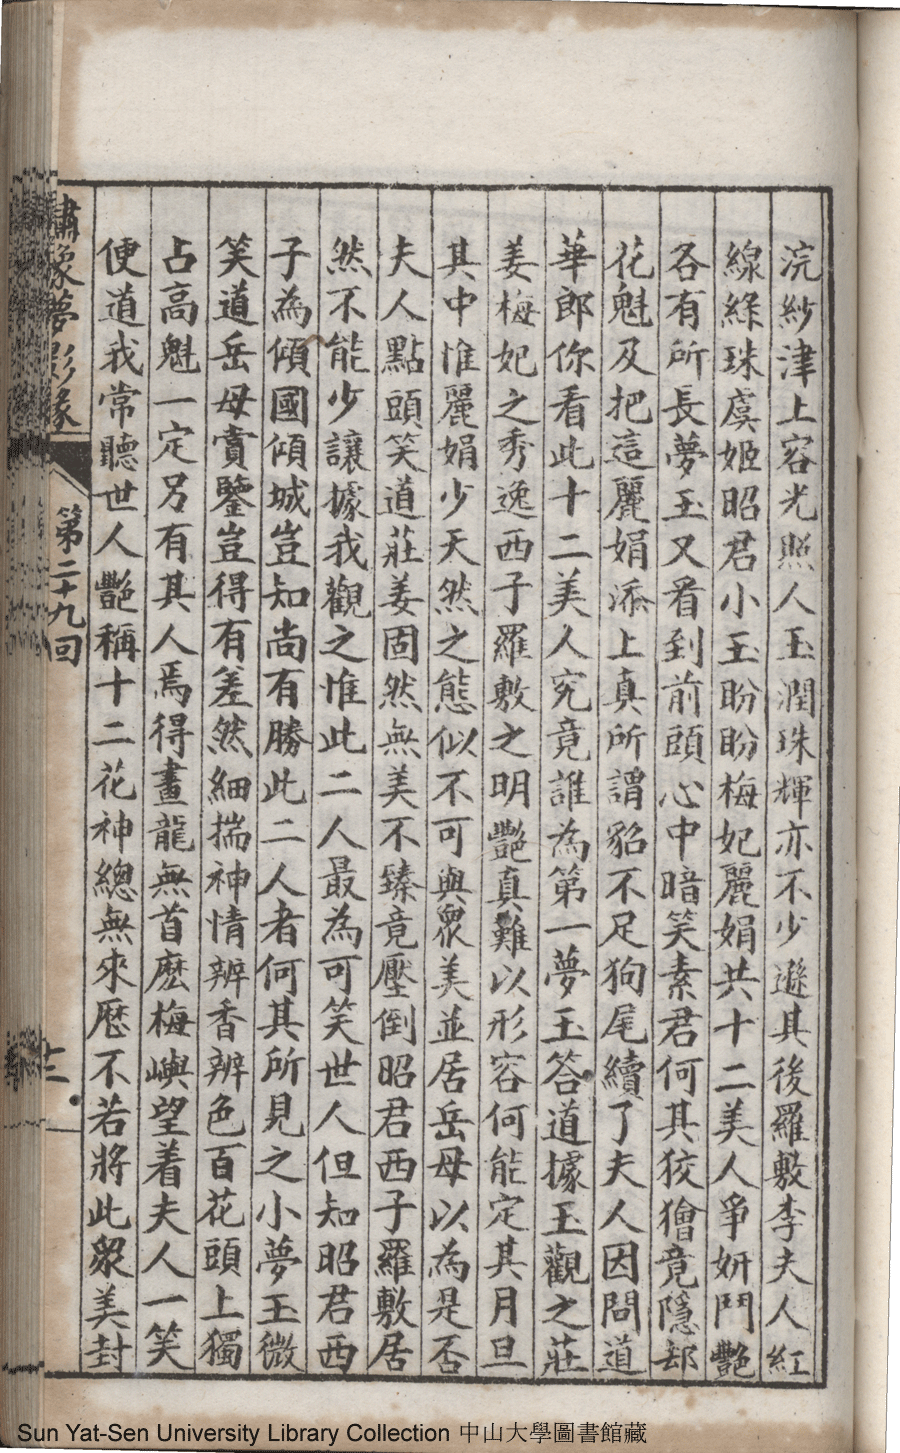 浣紗津上容光照人玉潤珠輝亦不少遜其後羅敷李夫人紅
線綠珠虞姬昭君小玉盼盼梅妃麗娟共十二美人爭妍鬥艷
各有所長夢玉又看到前頭心中暗笑素君何其狡獪竟隱却
花魁及把這麗娟添上真所謂貂不足狗尾續了夫人因問道
華郎你看此十二美人究竟誰為第一夢玉答道據玉觀之莊
姜梅妃之秀逸西子羅敷之明艷真難以形容何能定其月旦
其中惟麗娟少天然之態似不可與眾美並居岳母以為是否
夫人點頭笑道莊姜固然無美不臻竟壓倒昭君西子羅敷居
然不能少讓據我觀之惟此二人最為可笑世人但知昭君西
子為傾國傾城豈知尚有勝此二人者何其所見之小夢玉微
笑道岳母賞鑒豈得有差然細揣神情辨香辨色百花頭上獨
占高魁一定另有其人焉得畫龍無首麽梅嶼望着夫人一笑
便道我常聽世人艷稱十二花神總無來歷不若將此眾美封
繡像夢影緣
第二十九回
十二
Sun Yat-Sen University Library Collection 中山大學圖書館藏